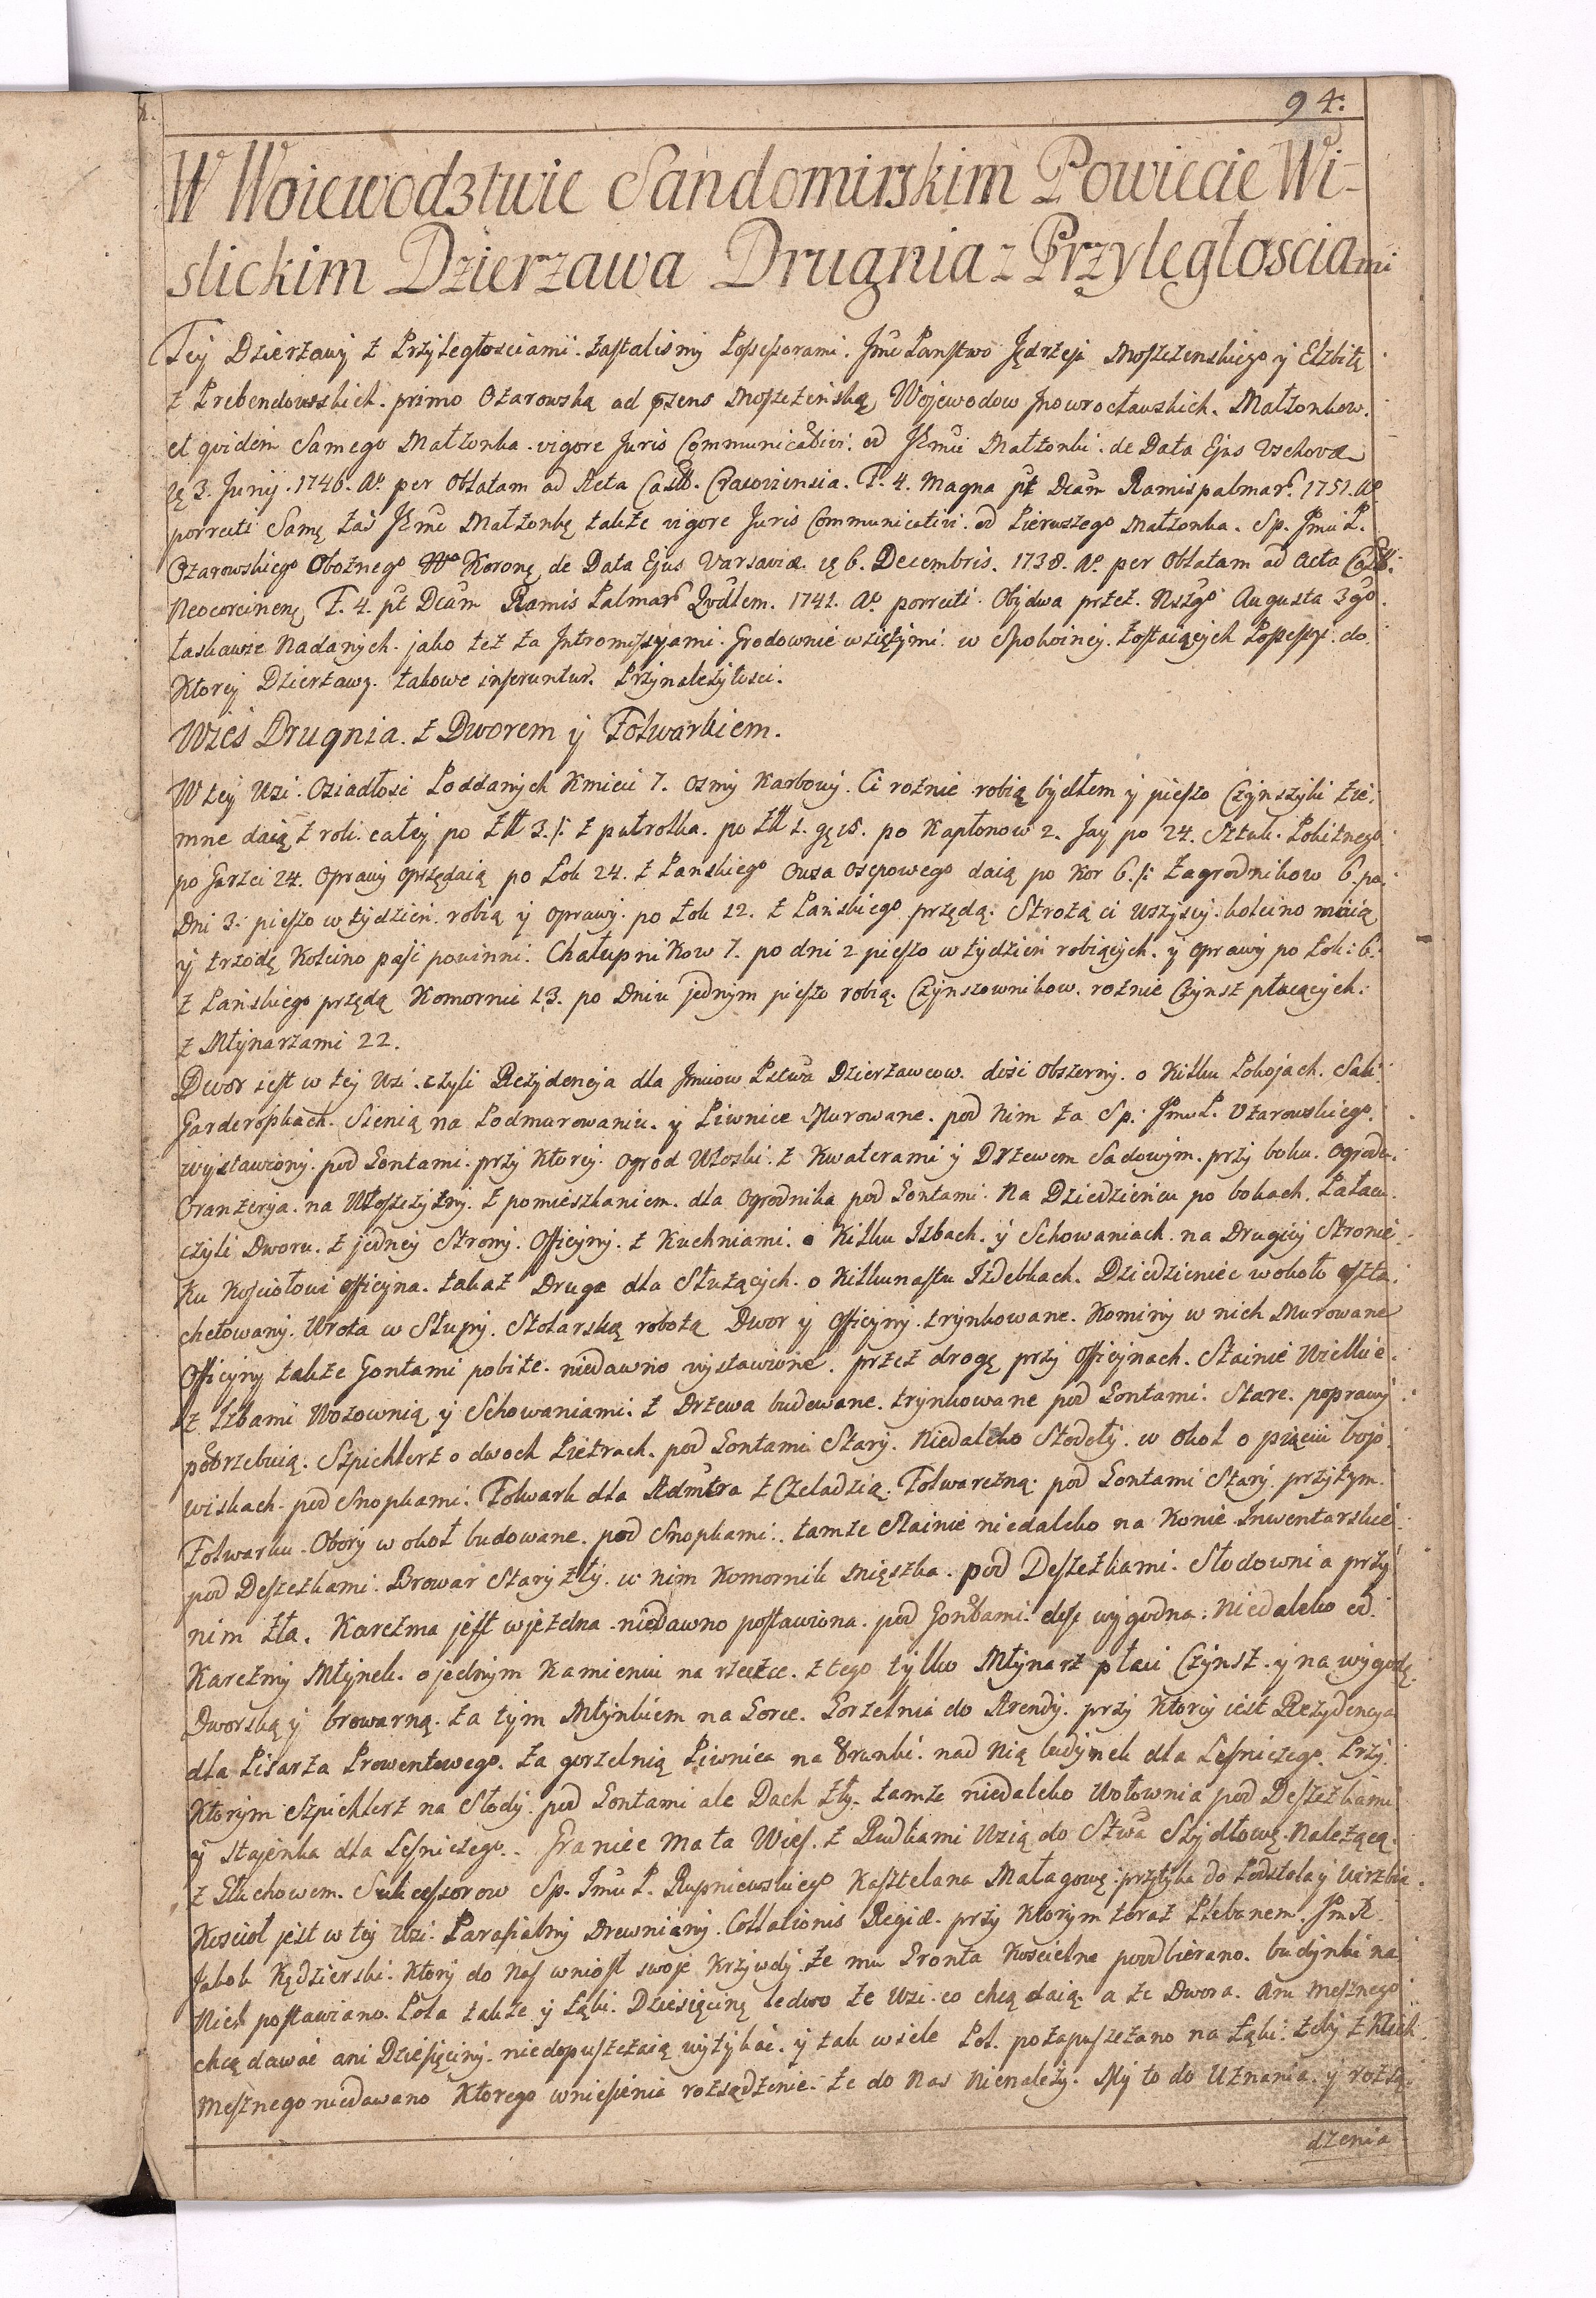 94.
W Woiewodztwie Sandomirskim Powiecie Wi-
slickim Dzierzawa Drugnia z Przyległosciami
Tey Dzierzawy z Przyległosciami zastalismy Possessorami. Jmć Panstwo Jędrzeja Moszczenskiego y Elzbitę
z Prebendowskich. primo Ozarowską ad psens Moszczeńską Wojewodow Jnowrocławskich. Małzonkow.
et qvidem Samego Małzonka. vigore Juris Communicativi. od JEmci Małzonki. de Data Ejus Vschovæ
3. Junij. 1746. Aº. per Oblatam ad Acta Castr. T. 4. Magna pt Dcam Ramispalmar. 1751. Aº
porrecti Samę zaś JEmć Małzonkę także vigore Juris Communicativi. od Pierwszego Małzonka. Sp. Jmci P.
Ozarowskiego Oboznego Koronę de Data Ejus Varsaviæ. 6. Decembris. 1738. Aº. per Oblatam ad Acta Castr.
Neocorcinenę F. 4. pt Dcam Ramis Palmar Qvdlem. 1741. Aº porrecti. Obydwa przez. Nszgo Augusta 3go.
łaskawie Nadanych. jako tez za Jntromissyami. Grodownie wziętymi. w Spokoiney. zostaiących Possessyi. do.
Ktorey Dzierzawy. takowe inseruntur. Przynależytosci.
Wieś Drugnia. z Dworem y Folwarkiem.
W tey Wsi. Osiadłosci Poddanych Kmieci 7. Osmy Karbowy. Ci roznie robią bydłem y pieszo Czynszyki zie.
mne daią z roli. całey po Złł 3. /: z pułrolka. po Złł 1. gę 15. po Kapłonow 2. Jay po 24. Sztuk. Pokitnego.
po Garści 24. Oprawy oprzędaią po Łok 24. z Panskiego Owsa osepowego daią po Kor 6. /: Zagrodnikow 6. po.
Dni 3. pieszo w tydzien. robią y oprawy. po Łok 12. z Pańskiego przędą. Strożą ci wszyscy. koleino maią
y trzodę Koleino paść powinni. Chałupnikow 7. po dni 2 pieszo w tydzień robiących. y oprawy po Łok: 6.
z Pańskiego przędą Komornic 13. po Dniu jednym pieszo robią. Czynszownikow. roznie Czynsz płacących.
z Młynarzami 22.
Dwor iest w tey Wsi. czyli Rezydencja dla Jmciow Pstwa Dzierzawcow. dość obszerny. o Kilku Pokojach. Sali.
Garderopkach. Sienią na Podmurowaniu. y Piwnice Murowane. pod nim za Sp. Jmci P. Ozarowskiego.
wystawiony. pod Gontami. przy Ktorey. Ogrod Włoski. z Kwaterami y Drzewem Sadowym. przy boku. Ogrodu.
Oranzerya. na Włoszczyzny. z pomieszkaniem. dla Ogrodnika pod Gontami. Na Dziedzińcu po bokach. Pałacu.
czyli Dworu. z jedney Strony. Officyny. z Kuchniami. o Kilku Izbach. y Schowaniach. na Drugiey Stronie.
Ku Kosciołowi officyna. takaz Druga dla Służących. o Kilkunastu Izdebkach. Dziedziniec wokoło oszta
chetowany. Wrota w Słupy. Stolarską robotą Dwor y Officyny. trynkowane. Kominy w nich Murowane
Officyny także Gontami pobite. niedawno wystawione. przez drogę przy officynach. Stainie Wielkie.
z Izbami Wozownią y Schowaniami. z Drzewa budowane. trynkowane pod Gontami. Stare. poprawy
potrzebuią. Szpichlerz o dwoch Piętrach. pod Gontami Stary. Niedaleko Stodoły. w okoł o pięciu bojo.
wiskach. pod Snopkami. Folwark dla Admtra z Czeladzią. Folwarczną. pod Gontami Stary. przytym.
Folwarku. Obory w okoł budowane. pod Snopkami.. tamze Stainie niedaleko na Konie Inwentarskie
pod Deszczkami. Browar Stary zły. w nim Komornik mięszka. pod Deszczkami. Słodownia przy
nim zła. Karczma jest wjezdna. niedawno postawiona. pod Gontami. dosc wygodna. Niedaleko od.
Karczmy Młynek. o jednym Kamieniu na rzeczce. z tego tylko Młynarz płaci Czynsz. y na wygodę
Dworską y browarną. za tym Młynkiem na Gorce. Gorzelnia do Arendy. przy Ktorey iest Rezydencja
dla Pisarza Prowentowego. za gorzelnią Piwnica na Trunki. nad nią budynek dla Lesniczego. Przy
Ktorym Szpichlerz na Słody. pod Gontami ale Dach zły. tamze niedaleko Wołownia pod Deszczkami
y Stajenka dla Lesniczego.. Graniec Mała Wies. z Rudkami Wsią do Stwa Szydłowę. Należącą.
z Głuchowem. Sukcessorow Sp. Jmci P. Rupniewskiego Kasztelana Małagowę. przytyka do Podstola y Wierzbia.
Koscioł jest w tey Wsi. Parafialny Drewniany. Collationis Regiæ. przy Ktorym teraz Plebanem. Jm X
Jakob Kędzierski. Ktory do Nas wniosł swoje Krzywdy. że mu Gronta Koscielne poodbierano. budynki na
Nich postawiano. Pola także y Łąki. Dziesięcinę ledwo ze Wsi. co chcą daią. a ze Dwora. Ani Mesznego
chcą dawać ani Dziesięciny. niedopuszczaią wytykać. y tak wiele Pol. pozapuszczano na Łąki. żeby z Nich.
Mesznego niedawano Ktorego wniesienia rozsądzenie. że do Nas nienależy. My to do Uznania. y rozsą.
dzenia